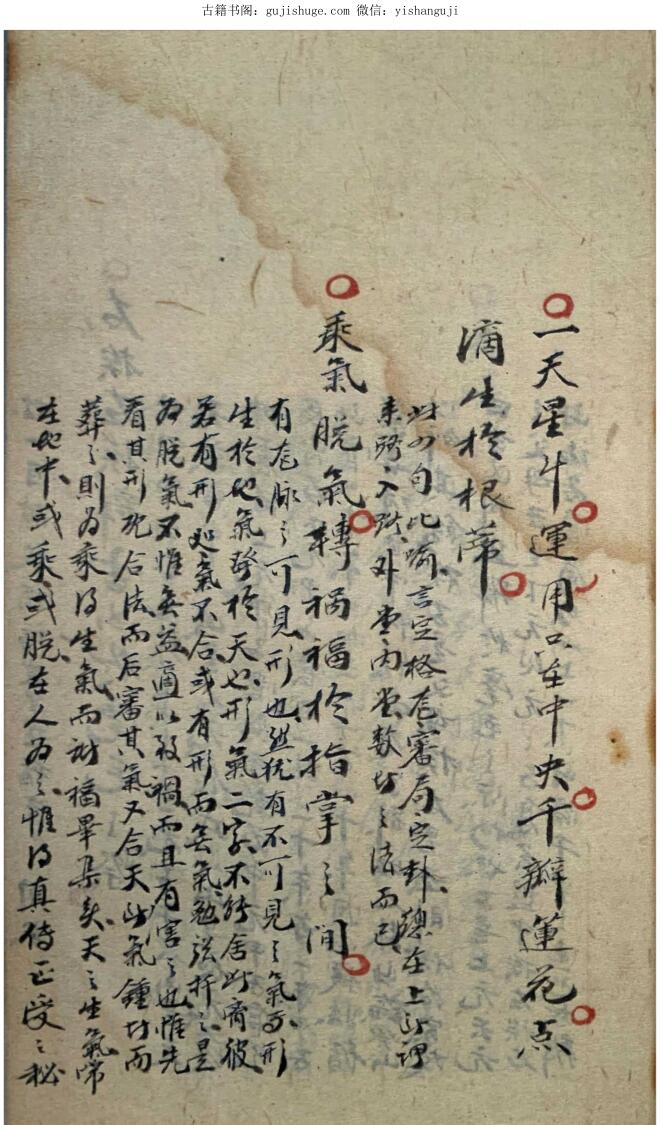 古籍书阁：gujishuge.com 微信：yishanguji
一天星斗運用只在中央千瓣蓮花点
滴生於根蒂
此四句比喻言定格龙審局定卦總在上此謂
来路入跌外堂内堂数坊之法而已
乘氣脱氣轉禍福於指掌之间
有龙脉之可見形也然犹有不可見之氣焉形
生於地氣發於天也形氣二字不能舍此而彼
若有形处氣不合或有形而無氣勉强扦之是
为脱氣不惟無益適以致禍而且有害之也惟先
看其形既合法而后審其氣又合天此氣鍾坊而
葬之則为乘得生氣而諸福畢集矣天之生氣常
在地中或乘或脱在人为之惟得真传正受之秘